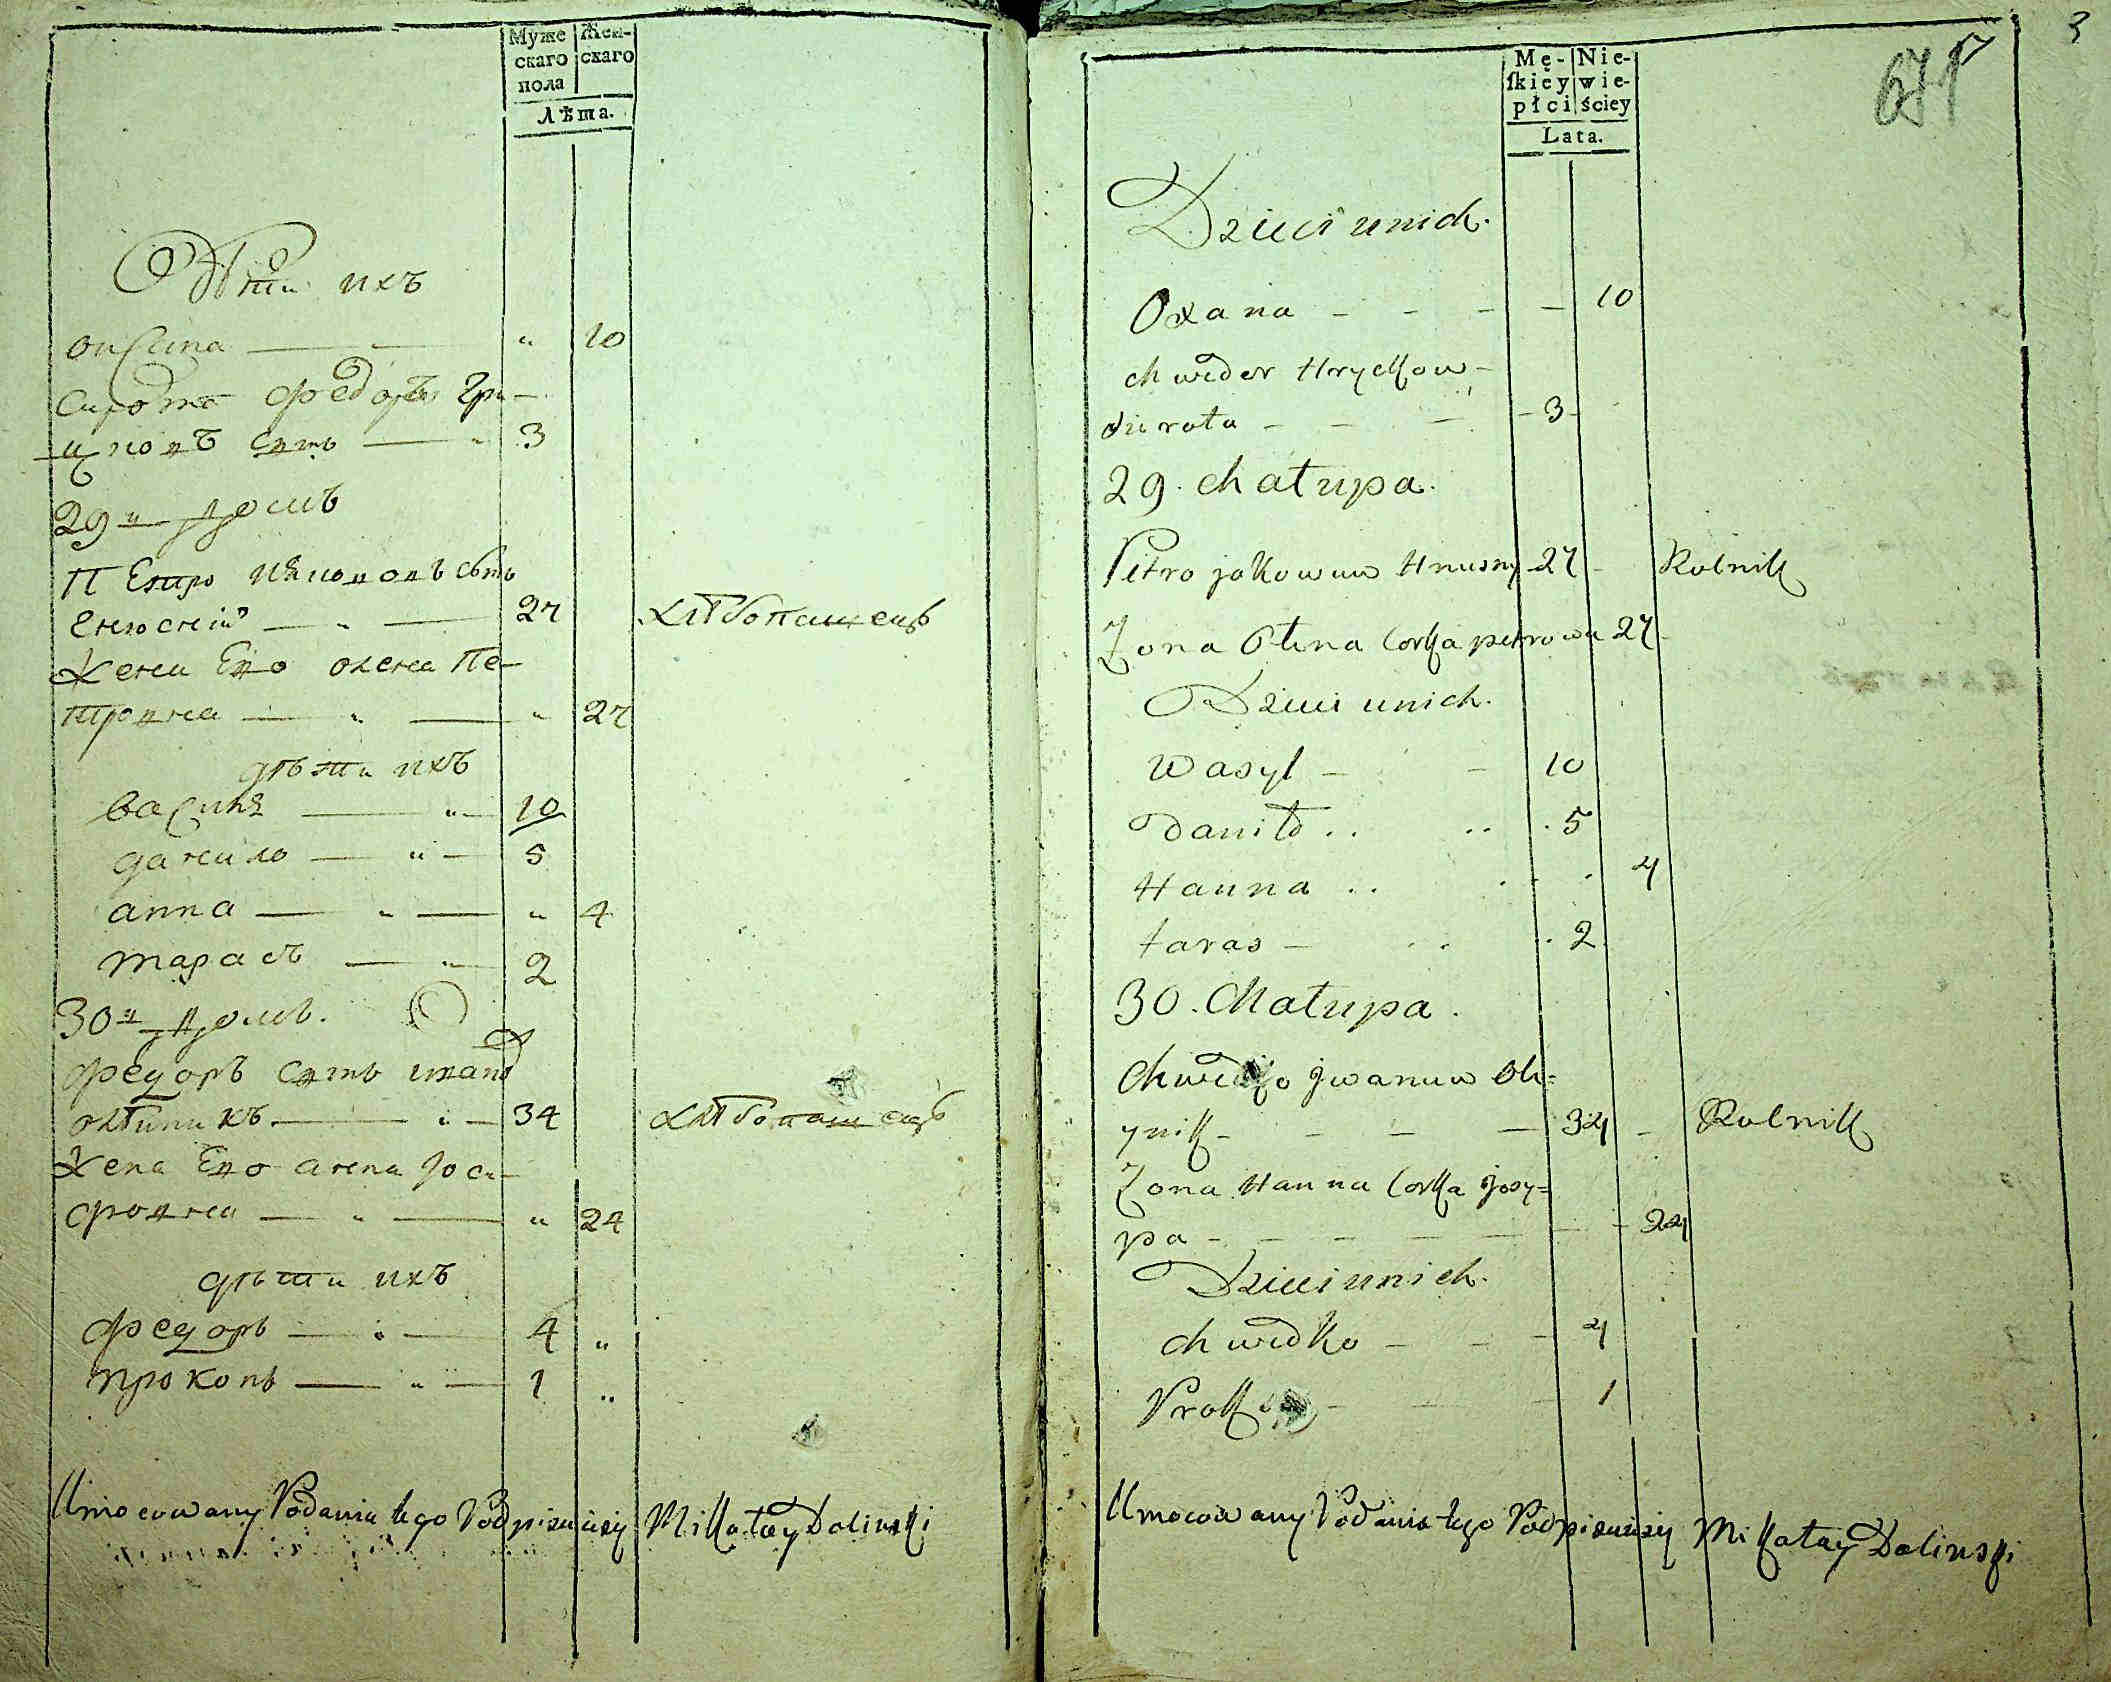 Муже Жен-
скаго скаго
пола
Лѣта.
Дѣти ихъ
Оксина " 10
Сирота Федоръ Гри-
цковъ сынъ 3
29й домъ
Петро Яковловъ сынъ
Гнюсній 27 хлѣбопашецъ
Жена Его олена Пе-
тровна " 27
дѣти ихъ
василь 10
данило 5
анна " 4
тарасъ 2
30й домъ.
Федоръ сынъ иванов
олѣйникъ 34 хлѣбопашецъ
Жена Его анна Iоси-
фовна " 24
дѣти ихъ
Федоръ 4 "
прокопъ 1 "
Umocowany Podania tego Podpisuiesię Mikołay Dolinski
3
671
Mę- Nie-
ſkiey wie-
płci ściey
Lata.
Dzieci unich.
Oxana - - - - 10
Chweder Hryckow -
Sirota - - - 3 -
29. Chałupa.
Petro jakowow Hnusny 27 - Rolnik
Zona Olena Corka petrowa 27
Dzieci unich.
Wasyl - - 10
Daniło . . . . . 5
Hanna . . . . . 4
taras - . . . 2
30. Chałupa.
Chwedko jwanuw Oli=
ynik - - - - 34 - Rolnik
Zona Hanna Corka josy=
pa - - - - - - - 24
Dzieci unich.
Chwedko - - - 4
Prok - - - 1
Umocowany Podania tego Podpisuiesię Mikołay Dolinski